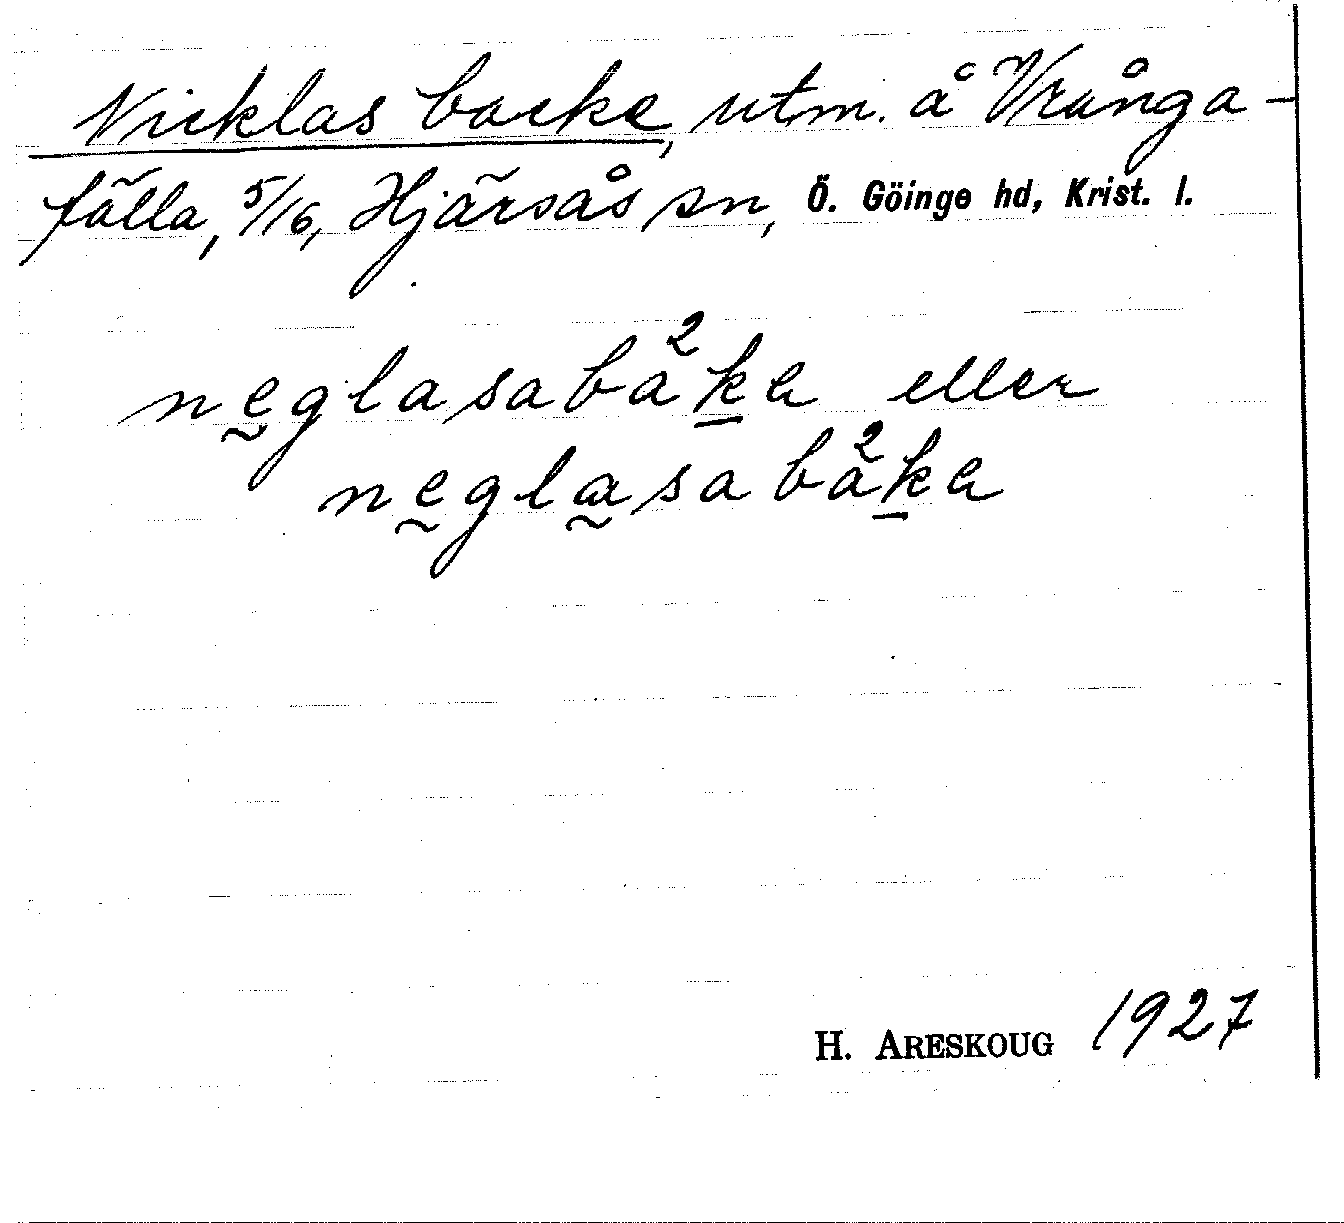 Nicklas backe, utm. å Vrånga-
fälla, 5/16, Hjärsås sn, Ö. Göinge hd, Krist. l.
neglasabä²ka eller
neglasabä²ka
H. ARESKOUG 1927